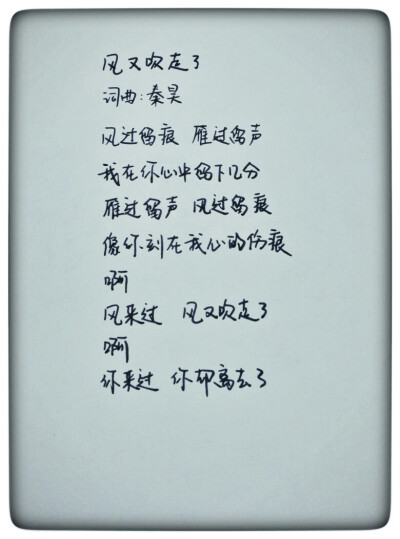 风又吹走了
词曲:秦昊
风过留痕 雁过留声
我在你心中留下几分
雁过留声 风过留痕
像你刻在我心的伤痕
啊
风来过 风又吹走了
啊
你来过 你却离去了